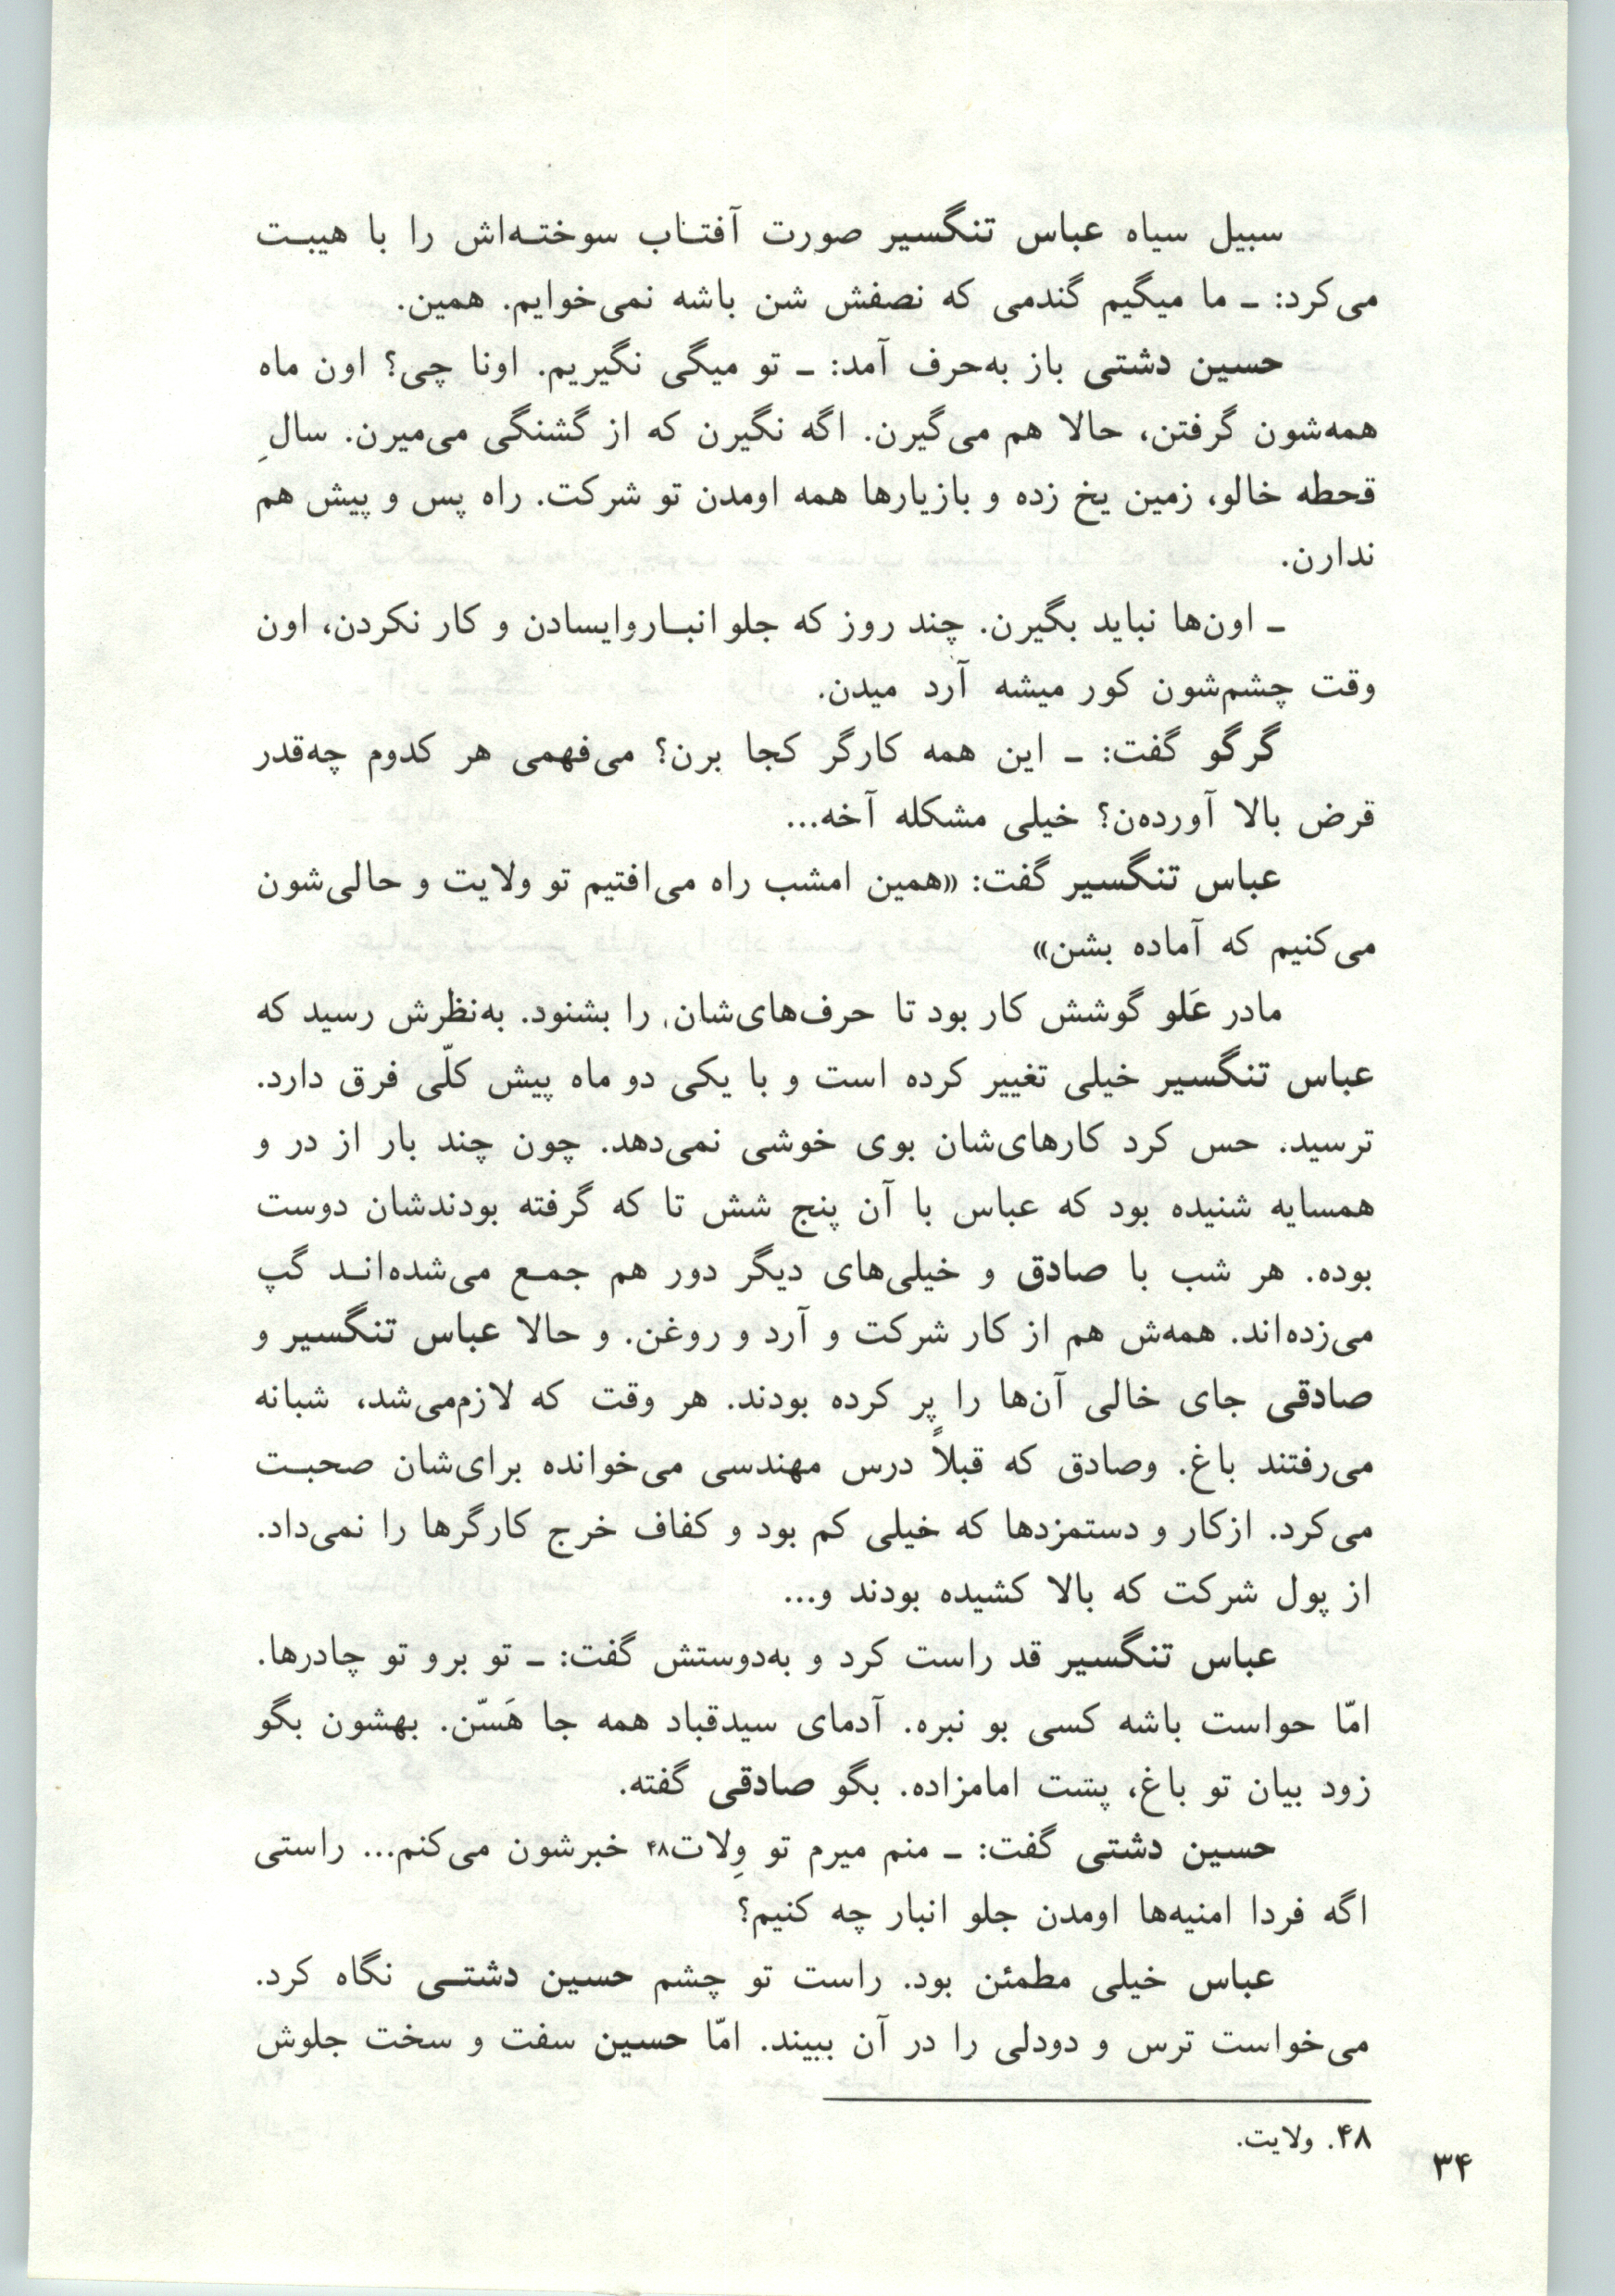 سبیل سیاه عباس تنگسیر صورت آفتـاب سوختـه‌اش را با هیبـت
می‌کرد: ـ ما میگیم گندمی که نصفش شن باشه نمی‌خوایم. همین.
حسین دشتی باز به‌حرف آمد: ـ تو میگی نگیریم. اونا چی؟ اون ماه
همه‌شون گرفتن، حالا هم می‌گیرن. اگه نگیرن که از گشنگی می‌میرن. سالِ
قحطه خالو، زمین یخ زده و بازیارها همه اومدن تو شرکت. راه پس و پیش هم
ندارن.
ـ اون‌ها نباید بگیرن. چند روز که جلو انبـاروایسادن و کار نکردن، اون
وقت چشم‌شون کور میشه آرد میدن.
گرگو گفت: ـ این همه کارگر کجا برن؟ می‌فهمی هر کدوم چه‌قدر
قرض بالا آورده‌ن؟ خیلی مشکله آخه...
عباس تنگسیر گفت: «همین امشب راه می‌افتیم تو ولایت و حالی‌شون
می‌کنیم که آماده بشن»
مادر عَلو گوشش کار بود تا حرف‌های‌شان را بشنود. به‌نظرش رسید که
عباس تنگسیر خیلی تغییر کرده است و با یکی دو ماه پیش کلّی فرق دارد.
ترسید. حس کرد کارهای‌شان بوی خوشی نمی‌دهد. چون چند بار از در و
همسایه شنیده بود که عباس با آن پنج شش تا که گرفته بودندشان دوست
بوده. هر شب با صادق و خیلی‌های دیگر دور هم جمـع می‌شده‌انـد گپ
می‌زده‌اند. همه‌ش هم از کار شرکت و آرد و روغن. و حالا عباس تنگسیر و
صادقی جای خالی آن‌ها را پر کرده بودند. هر وقت که لازم‌می‌شد، شبانه
می‌رفتند باغ. وصادق که قبلاً درس مهندسی می‌خوانده برای‌شان صحبـت
می‌کرد. ازکار و دستمزدها که خیلی کم بود و کفاف خرج کارگرها را نمی‌داد.
از پول شرکت که بالا کشیده بودند و...
عباس تنگسیر قد راست کرد و به‌دوستش گفت: ـ تو برو تو چادرها.
امّا حواست باشه کسی بو نبره. آدمای سیدقباد همه جا هَسّن. بهشون بگو
زود بیان تو باغ، پشت امامزاده. بگو صادقی گفته.
حسین دشتی گفت: ـ منم میرم تو وِلات۴۸ خبرشون می‌کنم... راستی
اگه فردا امنیه‌ها اومدن جلو انبار چه کنیم؟
عباس خیلی مطمئن بود. راست تو چشم حسین دشتـی نگاه کرد.
می‌خواست ترس و دودلی را در آن ببیند. امّا حسین سفت و سخت جلوش
۴۸. ولایت.
۳۴